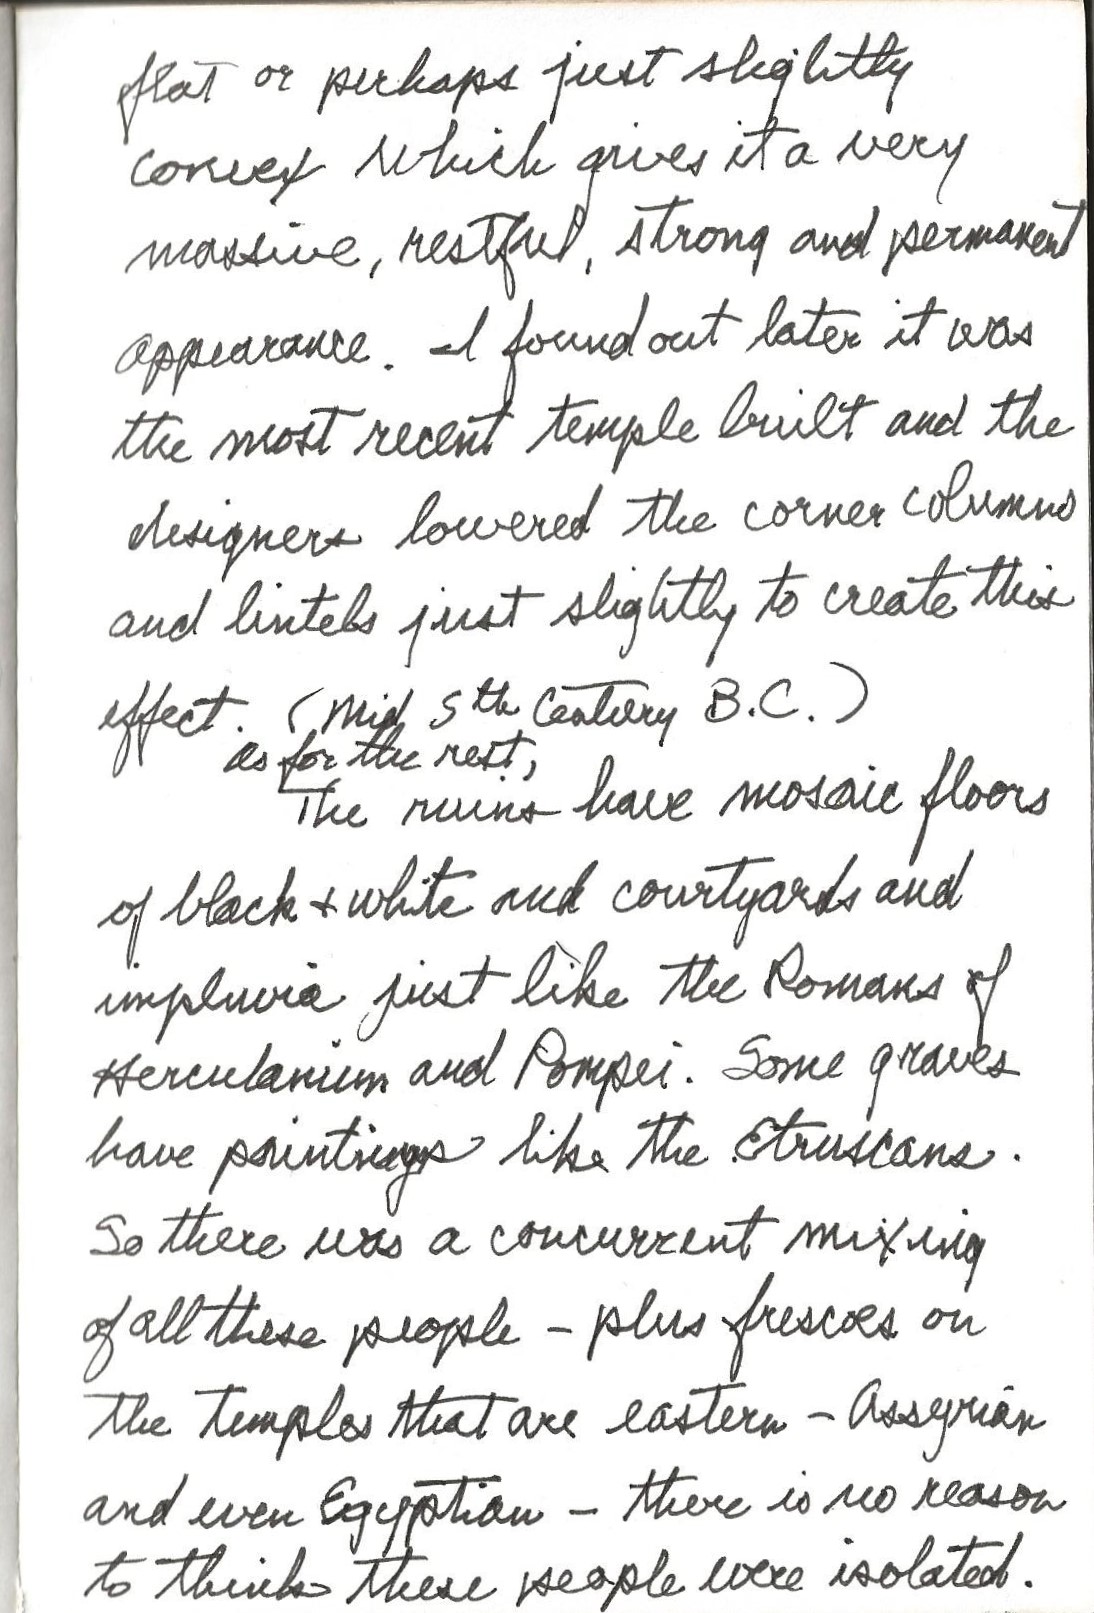 flat or perhaps just slightly
convex which gives it a very
massive, restful, strong and permanent
appearance. I found out later it was
the most recent temple built and the
designers lowered the corner columns
and lintels just slightly to create this
effect. (Mid 5th Century B.C.)
as for the rest,
The ruins have mosaic floors
of black + white and courtyards and
impluvia just like the Romans of
Herculanium and Pompei. Some graves
have paintings like the Etruscans.
So there was a concurrent mixing
of all these people – plus frescoes on
the temples that are eastern – Assyrian
and even Egyptian – there is no reason
to think these people were isolated.